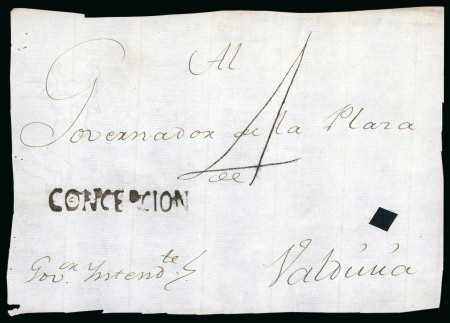 Al
Governador de la Plaza
4
de
CONCEPCION
Valdivia
Govor. Intendte.